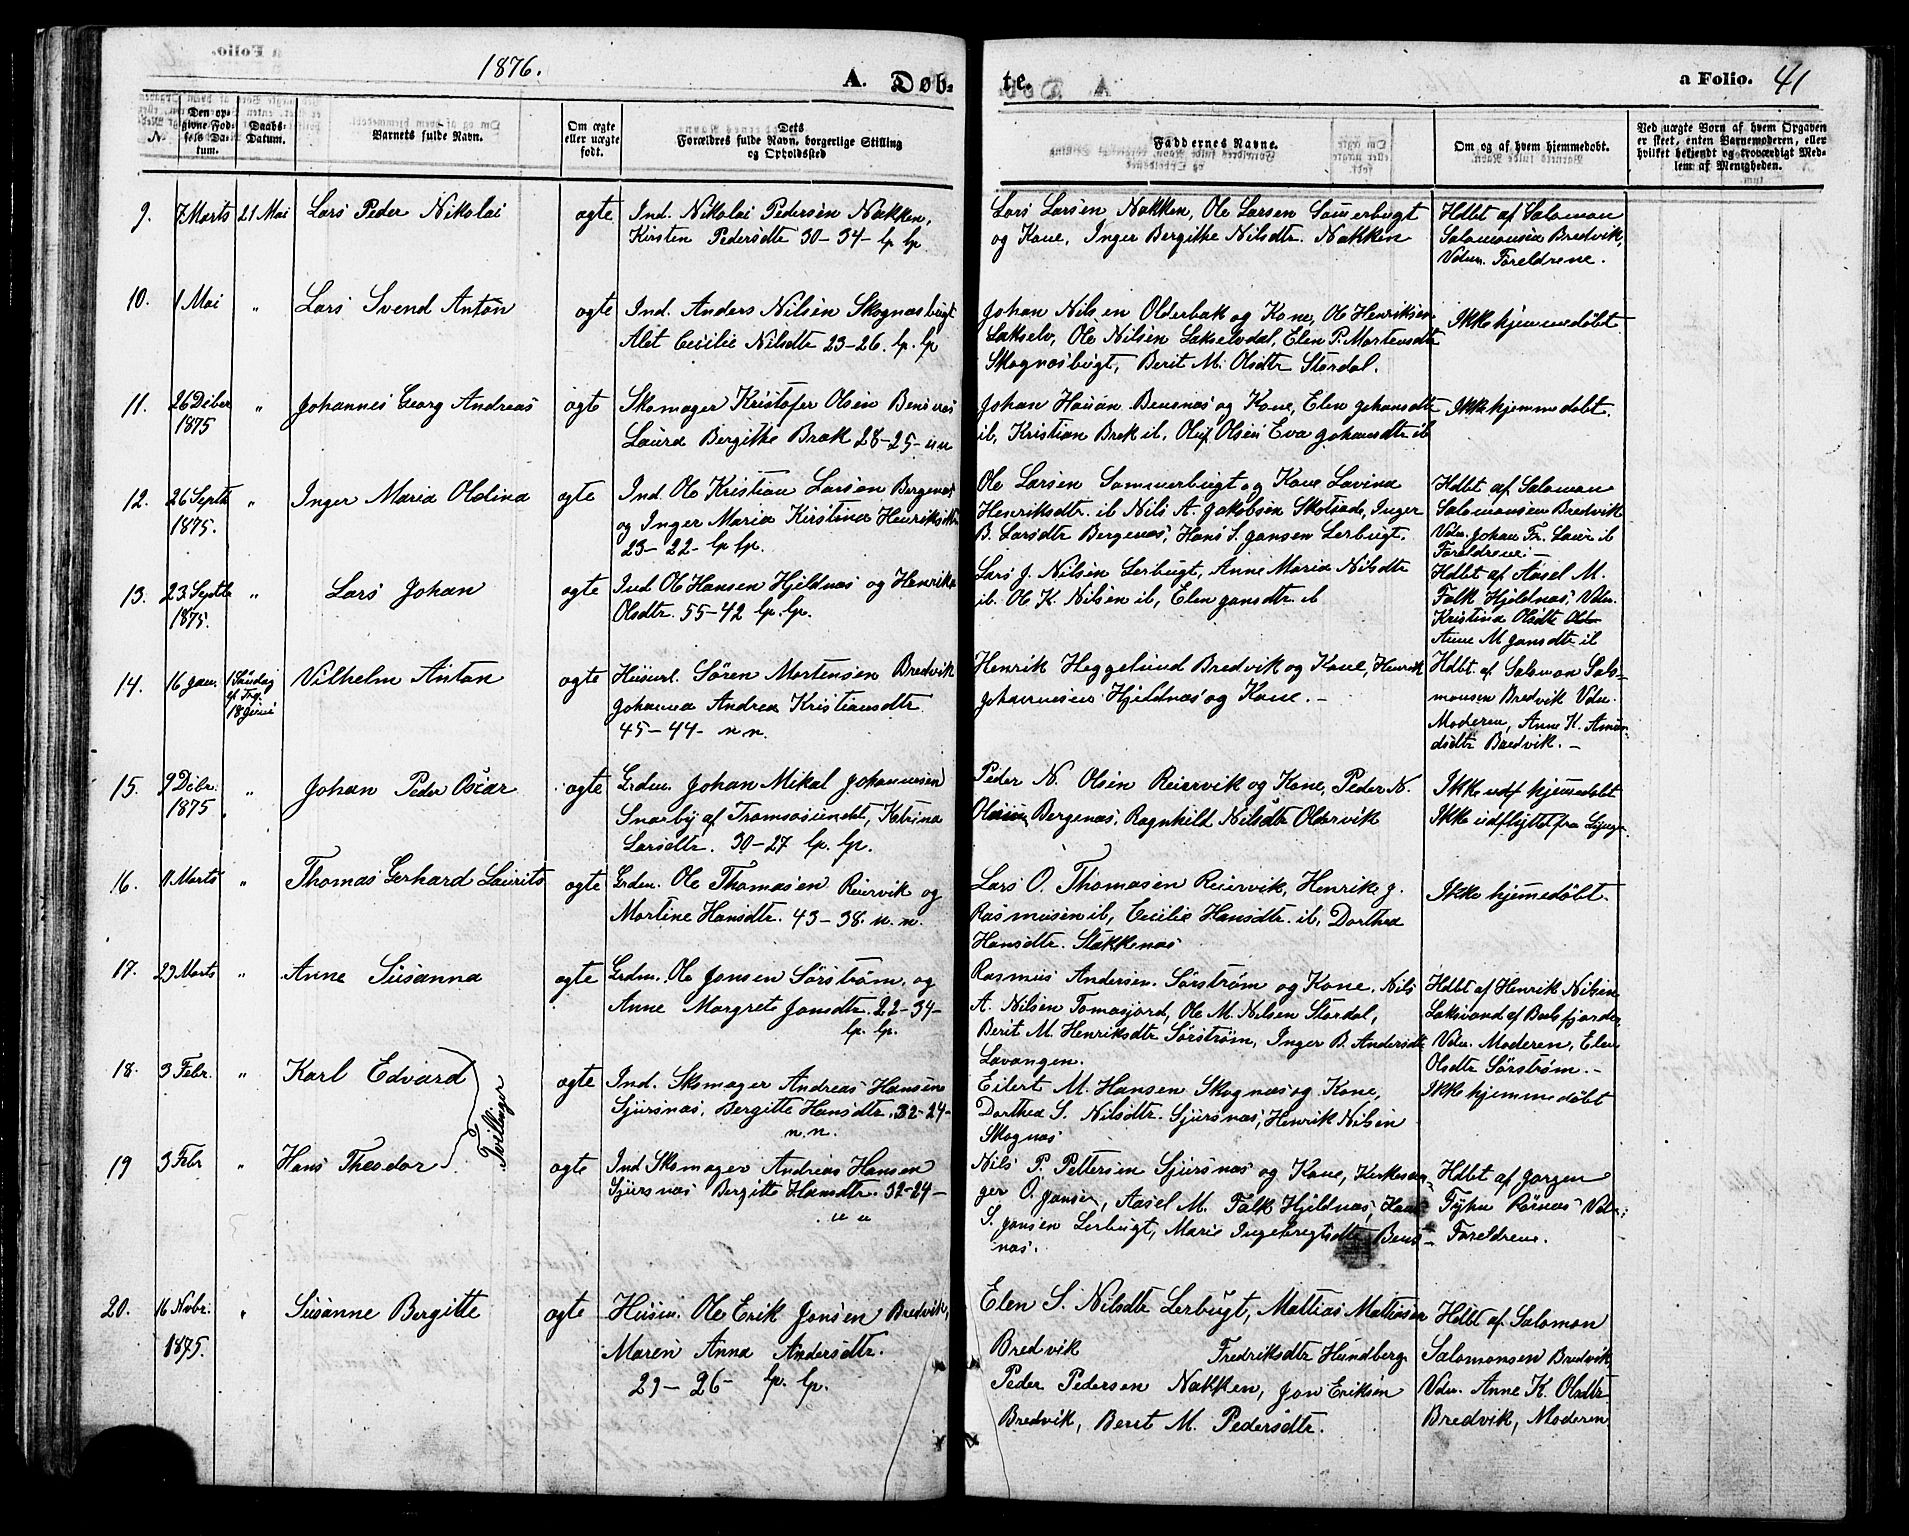 1876.
A. Døb-
te.
a Folio. 41
N.
Den op-
givne Fød-
sels Da-
tum.
Daabs-
Datum.
Barnets fulde Navn.
Om ægte
eller uægte
født.
Dets
Forældres fulde Navn, borgerlige Stilling
og Opholdssted
Faddernes Navne.
Om og af hvem hjemmedøbt.
Ved uægte Børn af hvem Opgaven
er skeet, enten Barnemoderen, eller
hvilket bekjendt og troværdigt Med-
lem af Menigheden.
9. 7 Marts 21 Mai Lars Peder Nikolai ægte
Ind. Nikolai Pedersen Nakken,
Kirsten Pedersdtr 30-34- lp lp.
Lars Larsen Nakken, Ole Larsen Somerbugt
og Kone, Inger Bergithe Nilsdtr. Nakken
Hdbt af Salomon
Salomonsen Bredvik,
Vdn. Foreldrene.
10. 1 Mai " Lars Svend Anton ægte
Ind. Anders Nilsen Skognæsbugt
Alet Cecilie Nilsdtr 23-26. lp. lp
Johan Nilsen Olderbak og Kone, Ole Henriksen
Lakselv, Ole Nilsen Lakselvdal, Elen P. Mortensdtr
Skognæsbugt, Berit M. Olsdtr Stordal.
Ikke hjemmedøbt
11. 26 Dcber
1875 " Johannes Georg Andreas ægte
Skomager Kristofer Olsen Bensnes
Laura Bergithe Brok 28-25- nn
Johan Hansen Bensnæs og Kone, Elen Johansdtr
ib, Kristian Brek ib, Oluf Olsen Eva Johansdtr ib
Ikke hjemmedøbt.
12. 26 Septb
1875. " Inger Maria Oldina ægte
Ind Ole Kristian Larsen Bergenes
og Inger Maria Kirstina Henriksdtr
23-22- lp lp.
Ole Larsen Sommerbugt og Kone Lavina
Henriksdtr. ib Nils A. Jakobsen Skotvad, Inger
B. Larsdtr Bergenæs, Hans S. Jansen Lerbugt.
Hdbt af Salomon
Salomonsen Bredvik
Vdn. Johan Fr. Lavr ib
Foreldrene -
13. 23 Septb
1875. " Lars Johan ægte
Ind Ole Hansen Hjeldnæs og Henrika
Olsdtr. 55-42 lp. lp.
Lars J. Nilsen Lerbugt, Anne Maria Nilsdtr
ib. Ole K. Nilsen ib, Elen Jansdtr ib
Hdbt af Aasel M.
Falk Hjeldnæs, Vdn.
Kristina Olsdtr
Anne M Jansdtr ib
14. 16 Jan. 1 Søndag
ef Trf.
18 Juni Vilhelm Anton ægte
Husm. Søren Mortensen Bredvik
Johanna Andrea Kristiansdtr
45-44- n n.
Henrik Heggelund Bredvik og Kone, Henrik
Johannesen Hjeldnæs og Kone. -
Hdbt. af Salomon Salo-
monsen Bredvik Vdn.
Moderen, Anne K. Amun-
dsdtr Bredvik. -
15. 9 Dcbr.
1875 " Johan Peder Oscar ægte
Grdm. Johan Mikal Johannesen
Snarby af Tromsøsundet, Katrina
Larsdtr. 30-27 lp. lp.
Peder N. Olsen Reiervik og Kone, Peder N.
Olsen Bergenæs, Ragnhild Nilsdtr Oldervik
Ikke hjemedøbt
Ikke udflyttet fra Lyng.
16. 11 Marts " Thomas Gerhard Laurits ægte
Grdm. Ole Thomasen Reiervik og
Martine Hansdtr. 43-38. n. n.
Lars O. Thomasen Reiervik, Henrik J.
Rasmusen ib, Cecilie Hansdtr. ib, Dorthea
Hansdtr. Stakkenæs
Ikke hjemedøbt.
17. 29 Marts " Anne Susanna ægte
Grdm. Ole Jonsen Sørstrøm, og
Anne Margrete Jonsdtr. 22-34-
lp. lp.
Rasmus Andersen Sørstrøm og Kone, Nils
A. Nilsen Tomasjord, Ole M. Nilsen Stordal,
Berit M. Henriksdtr Sørstrøm, Inger B. Andersdtr
Lavangen.
Hdbt af Henrik Nilsen
Laksvand af Balsfjorden
Vdn. Moderen, Elen
Olsdtr Sørstrøm. -
18. 3 Febr. " Karl Edvard ægte
Tvillinger
Ind. Skomager Andreas Hansen
Sjursnæs, Bergitte Hansdtr. 32-24-
n. n.
Eilert M. Hansen Skognæs og Kone,
Dorthea S. Nilsdtr. Sjursnæs, Henrik Nilsen
Skognæs
Ikke hjemmedøbt
19 3 Febr " Hans Theodor ægte
Ind Skomager Andreas Hansen
Sjursnæs Bergitte Hansdtr. 32-24-
n n
Nils P. Pettersen Sjursnæs og Kone, Kirkesan-
ger O. Jansen, Aasel M. Falk Hjeldnæs, Hans
S. Jansen Lerbugt, Marie Ingebregtsdtr Bens-
næs.
Hdbt af Jørgen
Fyhn Rørnæs Vdn:
Foreldrene.
20. 16 Nvbr.
1875. " Susanne Bergitte ægte
Husm. Ole Erik Jonsen Bredvik,
Maren Anna Andersdtr.
29-26- lp. lp.
Elen S. Nilsdtr Lerbugt, Mattias Mattiasen
Bredvik Fredriksdtr Hundberg
Peder Pedersen Nakken, Jon Eriksen
Bredvik, Berit M. Pedersdtr.
Hdbt af Salomon
Salomonsen Bredvik,
Vdn. Anne K. Olsdtr
Bredvik, Moderen